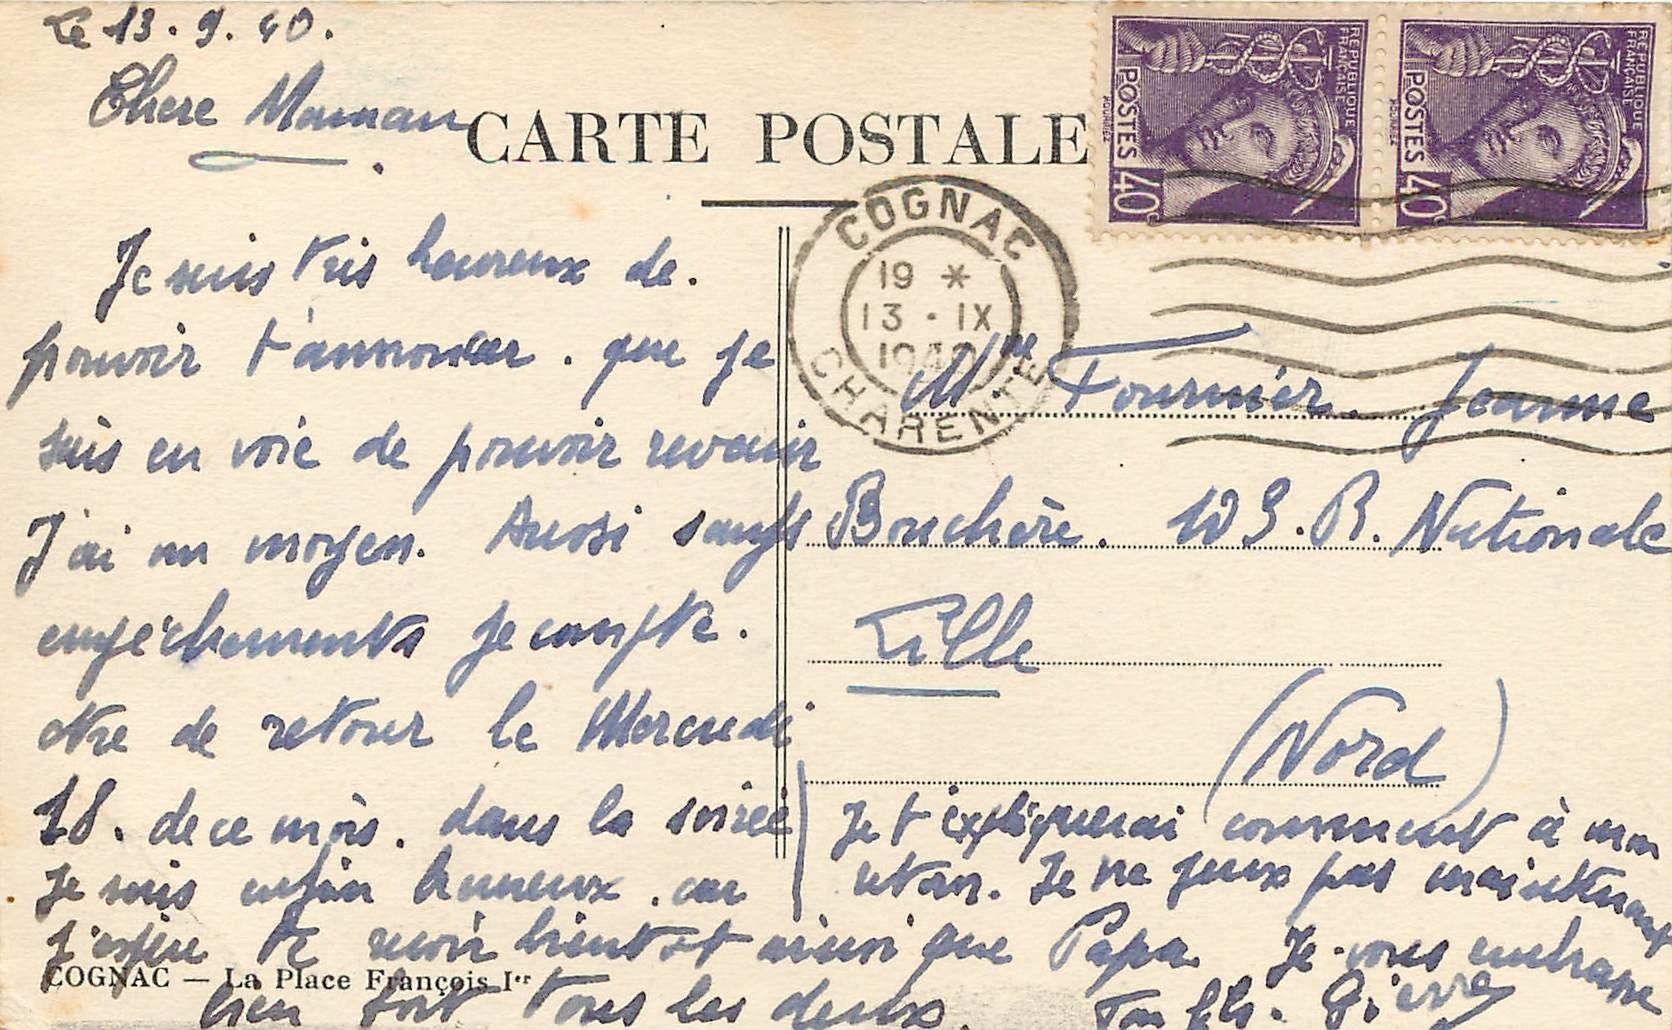 Le 13.9.40.
Chere Maman
CARTE POSTALE
RÉPUBLIQUE FRANÇAISE
POSTES 40c
RÉPUBLIQUE FRANÇAISE
POSTES 40c
COGNAC
19 *
13 · IX
1940
CHARENTE
Je suis très heureux de.
pouvoir t'annoncer. que je
suis en voie de pouvoir revenir
J'ai un moyen. Aussi saufs
empêchements je compte.
être de retour le Mercredi
18. de ce mois. dans la soirée
Je suis enfin heureux. car
j'espère te revoir bientôt ainsi que Papa. Je vous embrasse
bien fort tous les deux. Ton fils. Pierre
COGNAC — La Place François Ier
Mme Fournier. Jeanne
Bouchère. R. Nationale
Lille
(Nord)
Je t'expliquerai comment à mon
retour. Je ne peux pas maintenant